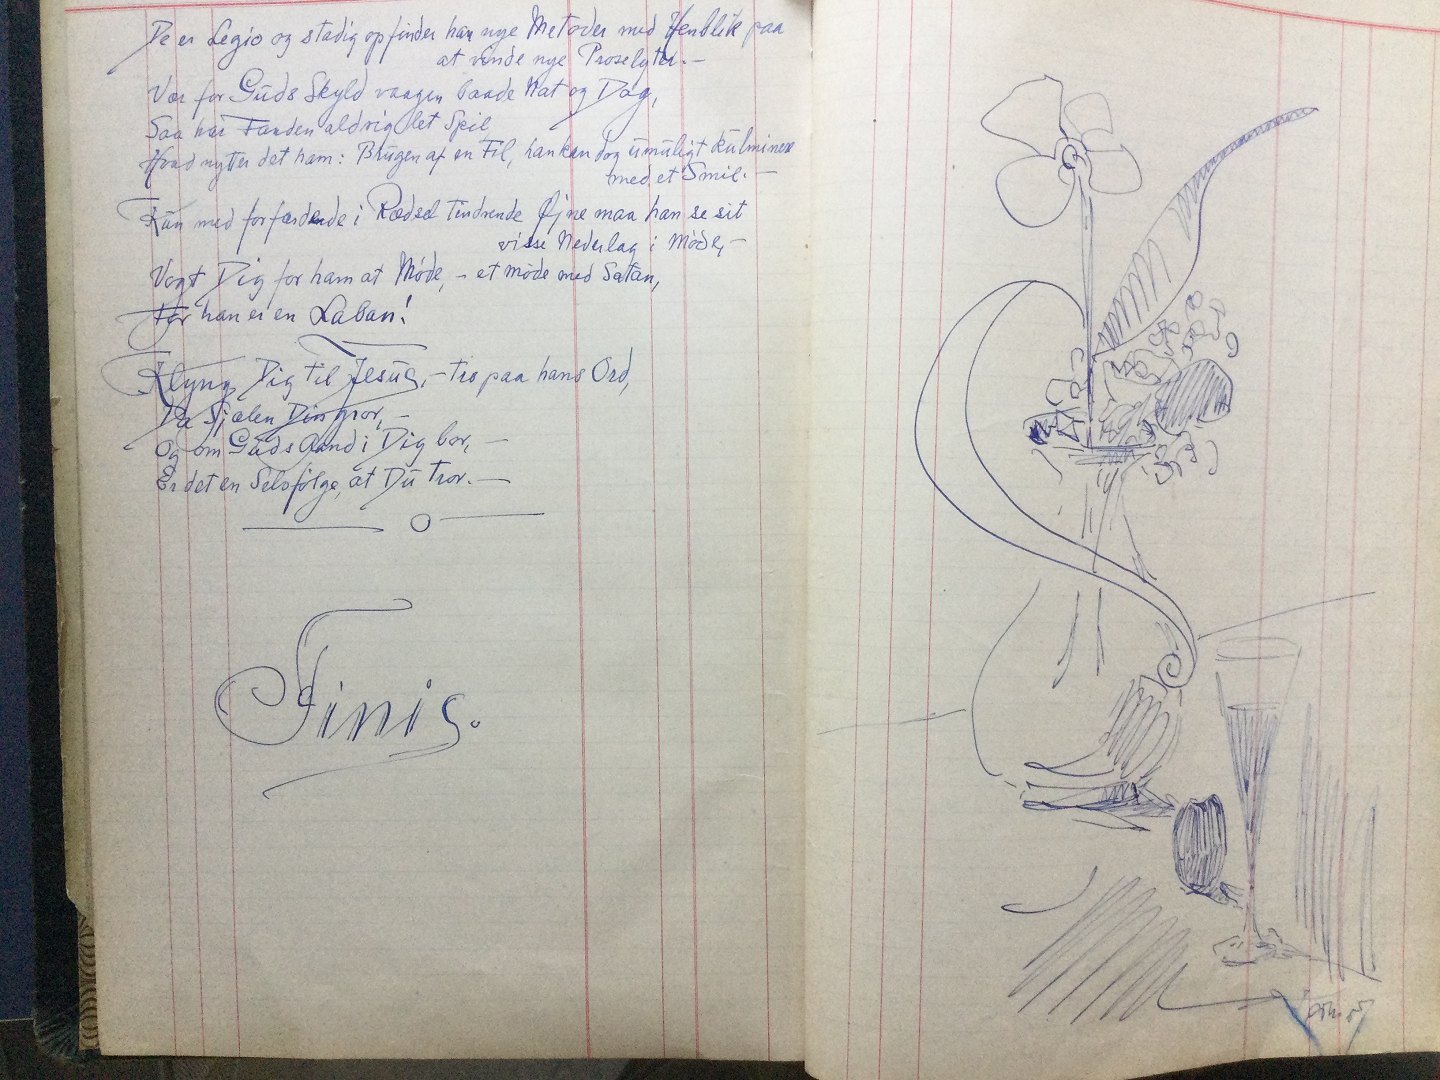 De er Legio og stadig opfinder han nye Metoder med Henblik paa
at vinde nye Proselyter. —
Vær for Guds Skyld vaagen baade Nat og Dag,
Saa har Fanden aldrig let Spil
Hvad nytter det ham: Brugen af en Fil, han kan dog umuligt kulminere
med et Smil. —
Kun med forfærdende i Rædsel tindrende Øjne maa han se sit
visse Nederlag i Møde, —
Vogt Dig for ham at Møde, — et møde med Satan,
For han er en Laban!
Klyng Dig til Jesus, — tro paa hans Ord,
Da Sjælen Din gror, —
Og om Guds Aand i Dig bor, —
Er det en Selvfølge, at Du tror. —
Finis.